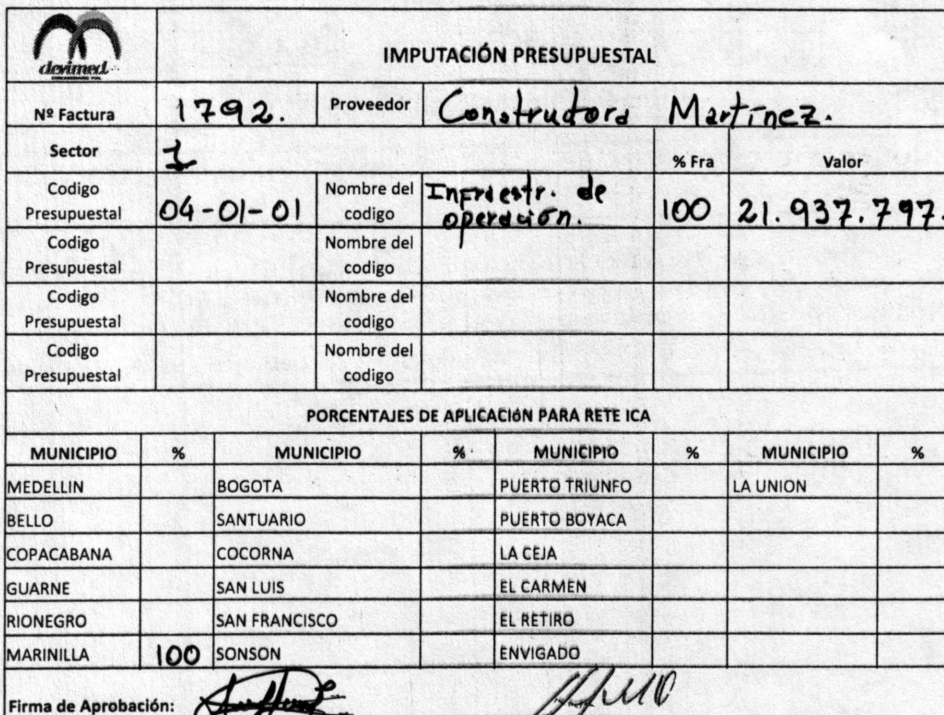 devimed
IMPUTACIÓN PRESUPUESTAL
Nº Factura 1792. Proveedor Constructora Martínez.
Sector 1 % Fra Valor
Codigo Presupuestal 04-01-01 Nombre del codigo Infraestr. de operación. 100 21.937.797.
Codigo Presupuestal Nombre del codigo
Codigo Presupuestal Nombre del codigo
Codigo Presupuestal Nombre del codigo
PORCENTAJES DE APLICACIÓN PARA RETE ICA
MUNICIPIO % MUNICIPIO % MUNICIPIO % MUNICIPIO %
MEDELLIN BOGOTA PUERTO TRIUNFO LA UNION
BELLO SANTUARIO PUERTO BOYACA
COPACABANA COCORNA LA CEJA
GUARNE SAN LUIS EL CARMEN
RIONEGRO SAN FRANCISCO EL RETIRO
MARINILLA 100 SONSON ENVIGADO
Firma de Aprobación: